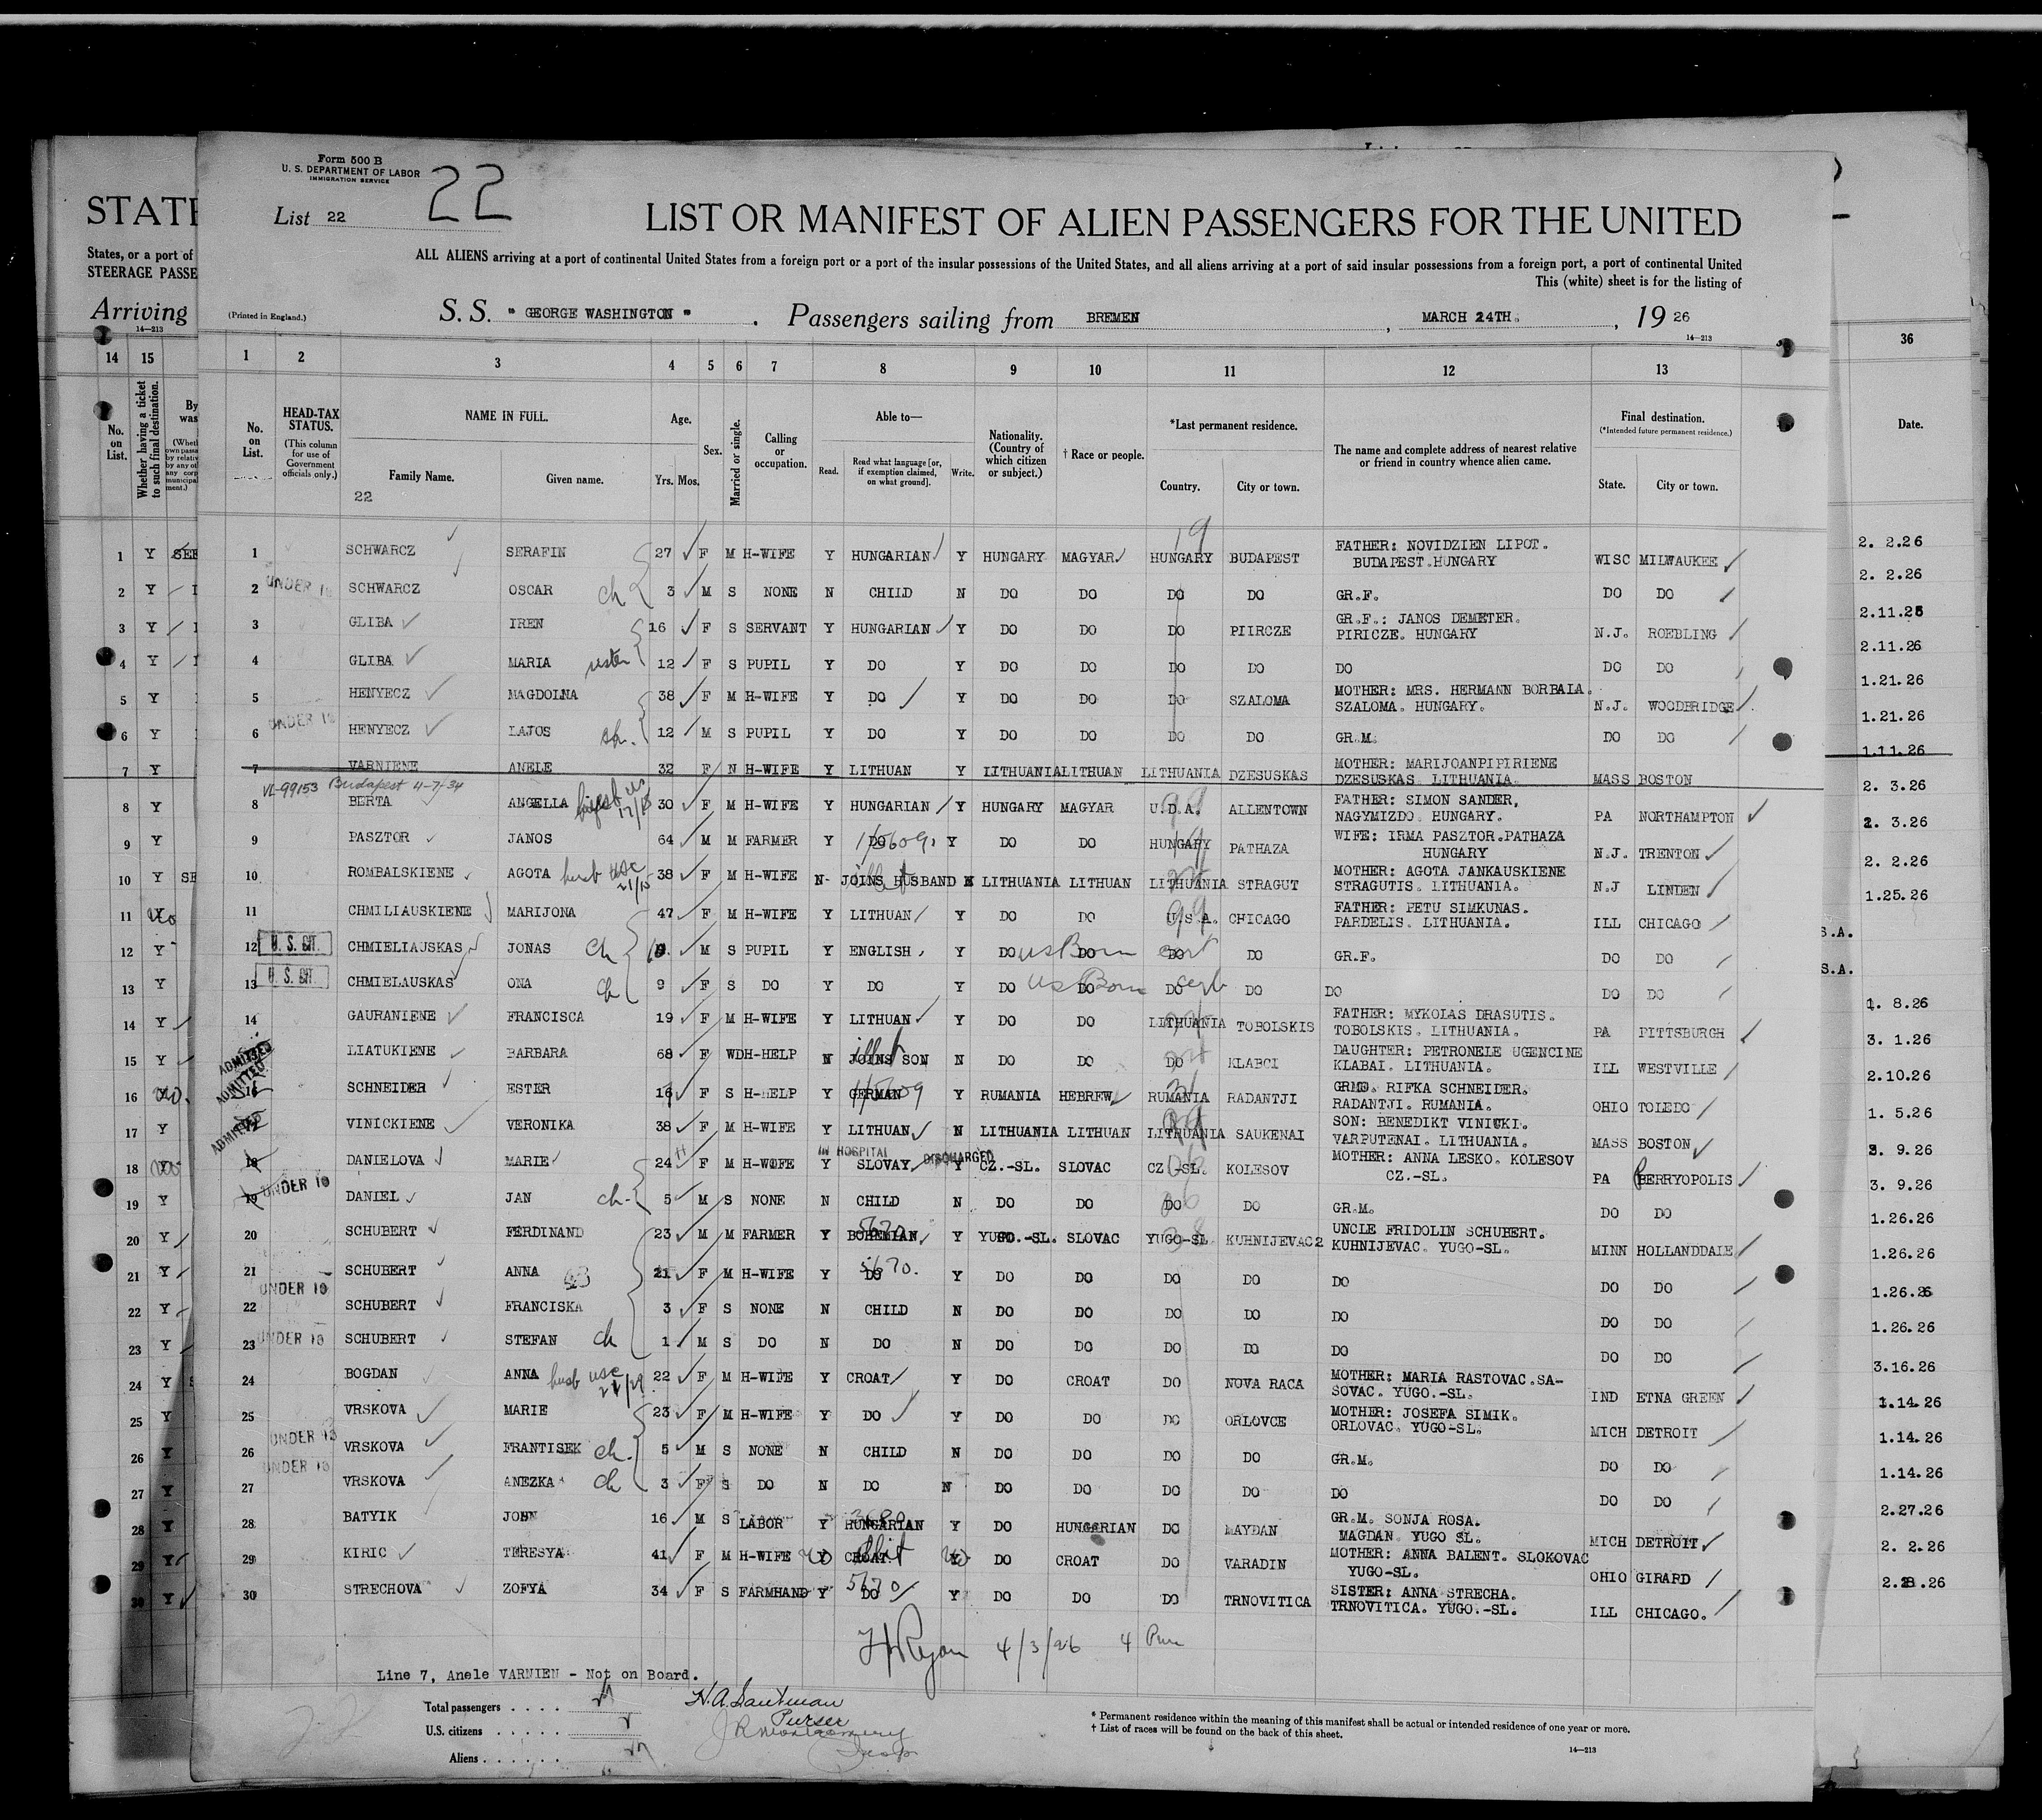 Form 500 B
U. S. DEPARTMENT OF LABOR
IMMIGRATION SERVICE
22
List 22
STATE
LIST OR MANIFEST OF ALIEN PASSENGERS FOR THE UNITED
ALL ALIENS arriving at a port of continental United States from a foreign port or a port of the insular possessions of the United States, and all aliens arriving at a port of said insular possessions from a foreign port, a port of continental United
This (white) sheet is for the listing of
States, or a port of
STEERAGE PASSE
Arriving
14—213
(Printed in England.)
S. S. " GEORGE WASHINGTON " . Passengers sailing from BREMEN , MARCH 24TH. , 19 26
14—213
14 15 1 2 3 4 5 6 7 8 9 10 11 12 13 36
No. on List. Whether having a ticket to such final destination. No. on List. HEAD-TAX STATUS. (This column for use of Government officials only.) NAME IN FULL. Family Name. Given name. Age. Yrs. Mos. Sex. Married or single. Calling or occupation. Able to— Read. Read what language [or, if exemption claimed, on what ground]. Write. Nationality. (Country of which citizen or subject.) † Race or people. *Last permanent residence. Country. City or town. The name and complete address of nearest relative or friend in country whence alien came. Final destination. (*Intended future permanent residence.) State. City or town. Date.
22
1 Y 1 SCHWARCZ SERAFIN 27 F M H-WIFE Y HUNGARIAN Y HUNGARY MAGYAR HUNGARY 19 BUDAPEST FATHER: NOVIDZIEN LIPOT. BUDAPEST.HUNGARY WISC MILWAUKEE 2. 2.26
2 Y 2 UNDER 16 SCHWARCZ OSCAR ch 3 M S NONE N CHILD N DO DO DO DO GR.F. DO DO 2. 2.26
3 Y 3 GLIBA IREN 16 F S SERVANT Y HUNGARIAN Y DO DO DO PIIRCZE GR.F.: JANOS DEMETER. PIRICZE. HUNGARY N.J. ROEBLING
4 Y 4 GLIBA MARIA sister 12 F S PUPIL Y DO Y DO DO DO DO DO DO DO 2.11.26
5 Y 5 HENYECZ MAGDOLNA 38 F M H-WIFE Y DO Y DO DO DO SZALOMA MOTHER: MRS. HERMANN BORBALA. SZALOMA. HUNGARY. N.J. WOODBRIDGE 1.21.26
6 Y 6 UNDER 16 HENYECZ LAJOS 12 M S PUPIL Y DO Y DO DO DO DO GR.M. DO DO 1.21.26
7 Y 7 VARNIENE ANELE 32 F N H-WIFE Y LITHUAN Y LITHUANIA LITHUAN LITHUANIA DZESUSKAS MOTHER: MARIJOANPIPIRIENE DZESUSKAS. LITHUANIA. MASS BOSTON 1.11.26
VL-99153 Budapest 4-7/34
8 Y 8 BERTA ANGELLA 30 F M H-WIFE Y HUNGARIAN Y HUNGARY MAGYAR U.D.A. 99 ALLENTOWN FATHER: SIMON SANDER, NAGYMIZDO. HUNGARY. PA NORTHAMPTON 2. 3.26
9 Y 9 PASZTOR JANOS 64 M M FARMER Y DO Y DO DO HUNGARY PATHAZA WIFE: IRMA PASZTOR.PATHAZA HUNGARY N.J. TRENTON 3.26
10 Y 10 ROMBALSKIENE AGOTA husb usc 21/15 38 F M H-WIFE N JOINS HUSBAND N LITHUANIA LITHUAN LITHUANIA STRAGUT MOTHER: AGOTA JANKAUSKIENE STRAGUTIS. LITHUANIA. N.J LINDEN 2. 2.26
11 Y 11 CHMILIAUSKIENE MARIJONA 47 F M H-WIFE Y LITHUAN Y DO DO U.S.A. 99 CHICAGO FATHER: PETU SIMKUNAS. PARDELIS. LITHUANIA. ILL CHICAGO 1.25.26
12 Y 12 U. S. CIT. CHMIELIAUSKAS JONAS ch M S PUPIL Y ENGLISH Y DO US Born cert DO DO DO GR.F. DO DO S.A.
13 Y 13 U. S. CIT. CHMIELAUSKAS ONA ch 9 F S DO Y DO Y DO US Born DO DO DO DO DO DO S.A.
14 Y 14 GAURANIENE FRANCISCA 19 F M H-WIFE Y LITHUAN Y DO DO LITHUANIA TOBOLSKIS FATHER: MYKOLAS DRASUTIS. TOBOLSKIS. LITHUANIA. PA PITTSBURGH 1. 8.26
15 Y 15 ADMITTED LIATUKIENE BARBARA 68 F WD H-HELP N JOINS SON N DO DO DO KLABCI DAUGHTER: PETRONELE UGENCINE KLABAI. LITHUANIA. ILL WESTVILLE 3. 1.26
16 16 ADMITTED SCHNEIDER ESTER 16 F S H-HELP Y GERMAN Y RUMANIA HEBREW RUMANIA RADANTJI GRMO. RIFKA SCHNEIDER. RADANTJI. RUMANIA. OHIO TOLEDO 2.10.26
17 Y 17 ADMITTED VINICKIENE VERONIKA 38 F M H-WIFE Y LITHUAN N LITHUANIA LITHUAN LITHUANIA SAUKENAI SON: BENEDIKT VINICKI. VARPUTENAI. LITHUANIA. MASS BOSTON 1. 5.26
IN HOSPITAL DISCHARGED
18 18 DANIELOVA MARIE 24 F M H-WIFE Y SLOVAY Y CZ.-SL. SLOVAC CZ.-SL. KOLESOV MOTHER: ANNA LESKO. KOLESOV CZ.-SL. PA PERRYOPOLIS 9.26
19 Y 19 UNDER 16 DANIEL JAN ch. 5 M S NONE N CHILD N DO DO DO DO GR.M. DO DO 3. 9.26
20 Y 20 SCHUBERT FERDINAND 23 M M FARMER Y BOHEMIAN 5670 Y YUGO.-SL. SLOVAC YUGO-SL KUHNIJEVAC2 UNCLE FRIDOLIN SCHUBERT. KUHNIJEVAC. YUGO-SL. MINN HOLLANDDALE 1.26.26
21 Y 21 SCHUBERT ANNA 21 F M H-WIFE Y DO 5670. Y DO DO DO DO DO DO DO 1.26.26
22 Y 22 UNDER 16 SCHUBERT FRANCISKA 3 F S NONE N CHILD N DO DO DO DO DO DO DO 1.26.26
23 Y 23 UNDER 16 SCHUBERT STEFAN ch 1 M S DO N DO N DO DO DO DO DO DO DO 1.26.26
24 Y 24 BOGDAN ANNA husb usc 22 F M H-WIFE Y CROAT Y DO CROAT DO NOVA RACA MOTHER: MARIA RASTOVAC.SA- SOVAC. YUGO.-SL. IND ETNA GREEN 3.16.26
25 Y 25 VRSKOVA MARIE 23 F M H-WIFE Y DO Y DO DO DO ORLOVCE MOTHER: JOSEFA SIMIK. ORLOVAC. YUGO-SL. MICH DETROIT 1.14.26
26 Y 26 UNDER 16 VRSKOVA FRANTISEK ch. 5 M S NONE N CHILD N DO DO DO DO GR.M. DO DO 1.14.26
27 Y 27 UNDER 16 VRSKOVA ANEZKA ch 3 F S DO N DO N DO DO DO DO DO DO DO 1.14.26
28 Y 28 BATYIK JOHN 16 M S LABOR Y HUNGARIAN Y DO HUNGARIAN DO MAYDAN GR.M. SONJA ROSA. MAGDAN. YUGO SL. MICH DETROIT 2.27.26
29 Y 29 KIRIC TERESYA 41 F M H-WIFE CROAT DO CROAT DO VARADIN MOTHER: ANNA BALENT. SLOKOVAC YUGO-SL. OHIO GIRARD 2. 2.26
30 Y 30 STRECHOVA ZOFYA 34 F S FARMHAND Y DO 5670 Y DO DO DO TRNOVITICA SISTER: ANNA STRECHA. TRNOVITICA. YUGO.-SL. ILL CHICAGO.
Ryan 4/3/26 4
Line 7, Anele VARNIEN - Not on Board.
Total passengers . . . .
U.S. citizens . . . . .
Aliens . . . . . .
Purser
* Permanent residence within the meaning of this manifest shall be actual or intended residence of one year or more.
† List of races will be found on the back of this sheet.
14—213